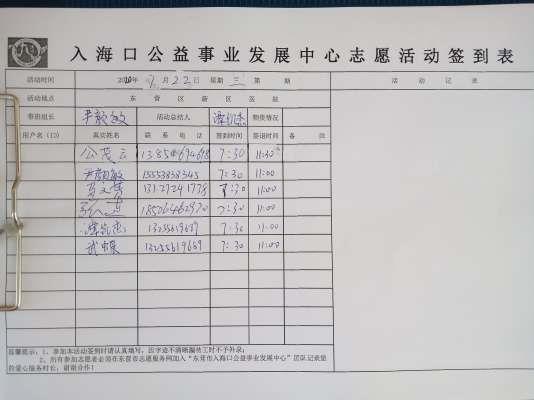 入海口公益事业发展中心志愿活动签到表
活动时间 2020年 9月22日 星期 三 第 期 活动记录
活动地点 东营区新区医院
带班组长 尹颜敏 活动总结人 物资情况
用户名（ID） 真实姓名 联系电话 签到时间 签退时间 备注
公茂云 7:30 11:30
尹颜敏 15553838345 7:30 11:00
13127241778 7:30 11:00
18526462970 7:30 11:00
13255619689 7:30 11:00
武 13255619689 7:30 11:00
温馨提示：1、参加本活动签到时请认真填写，因字迹不清晰漏统工时不予补录；
2、所有参加志愿者必须在东营市志愿服务网加入“东营市入海口公益事业发展中心”团队记录您
的爱心服务时长，谢谢合作！